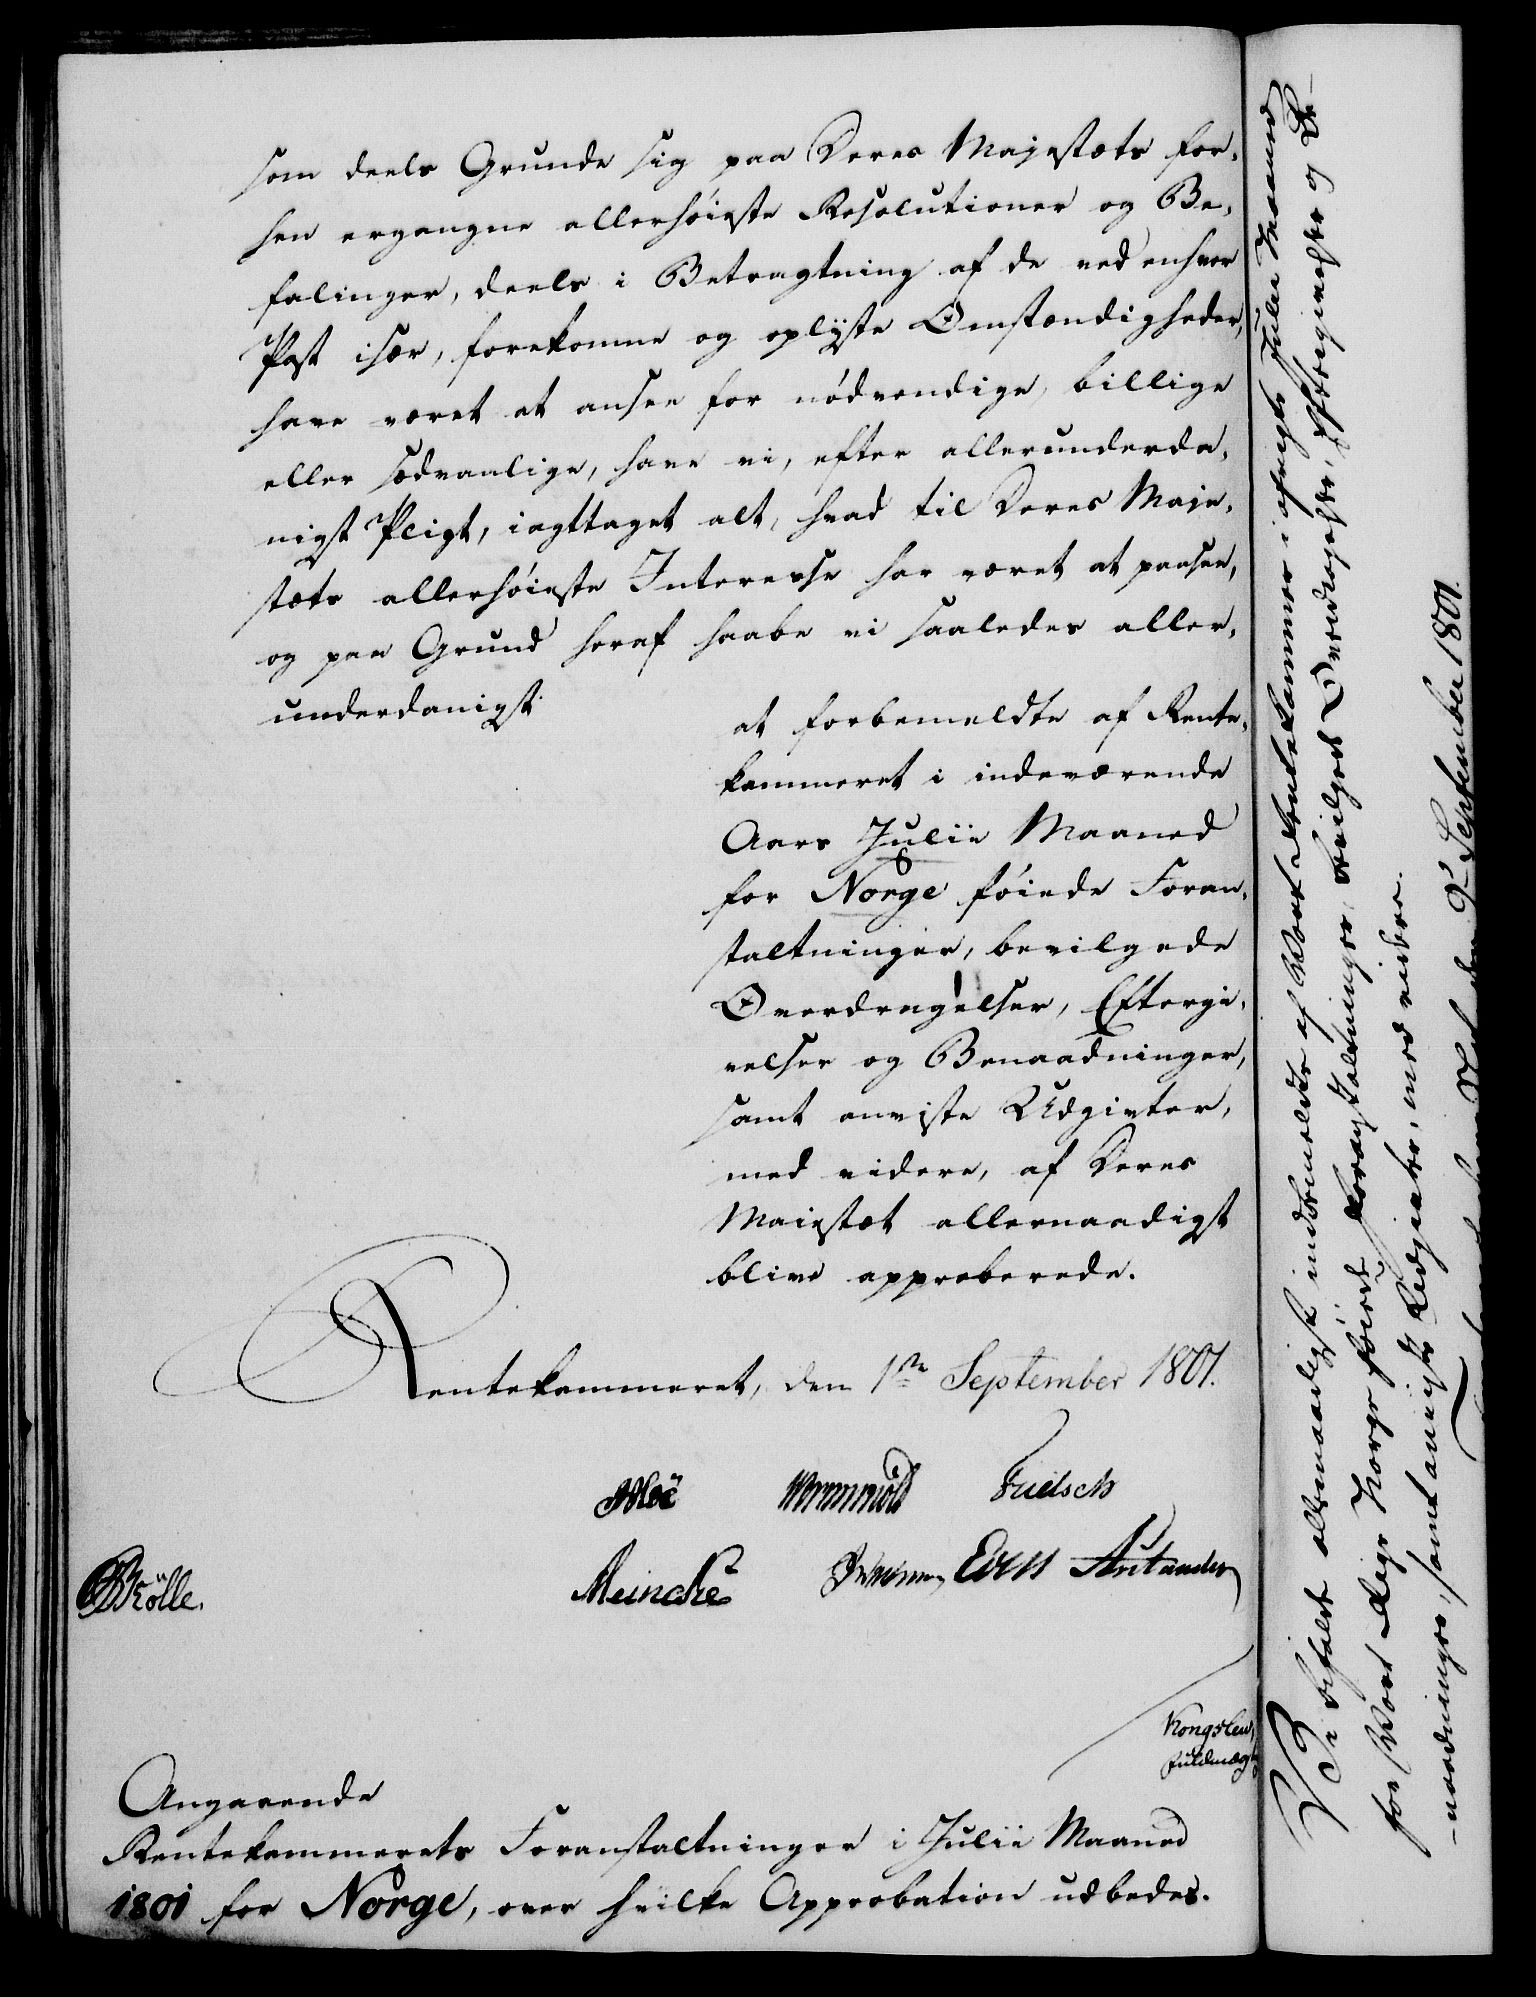 som deels Grunde sig paa Deres Majestæts for-
hen ergangne allerhøieste Resolutioner og Be-
falinger, deels i Betragtning af de ved enhver
Post især, forekomne og oplyste Omstændigheder,
have været at ansee for nødvendige, billige
eller sædvanlige, have vi, efter allerunderda-
nigst Pligt, iagttaget alt, hvad til Deres Maje-
stæts allerhøieste Interesse har været at paasee,
og paa Grund heraf haabe vi saaledes aller-
underdanigst
at forbemeldte af Rente-
kammeret i indeværende
Aars Julii Maaned
for Norge føiede Foran-
staltninger, bevilgede
Overdragelser, Eftergi-
velser og Benaadninger,
samt anviste Udgivter,
med videre, af Deres
Maiestæt allernaadigst
blive approberede.
Rentekammeret, den 1ste September 1801.
Meincke
Kölle.
Angaaende
Rentekammerets Foranstaltninger i Julii Maaned
1801 for Norge, over hvilke Approbation udbedes.
Vi befale allernaadigst indbemeldte af Vort Rentekammer i afvigte Julii Maaned
for Vort Rige Norge føiede Foranstaltninger, bevilgede Overdragelser, Eftergivelser og Be-
-naadninger, samt anviste Udgivter, med videre.
den 9de September 1801.